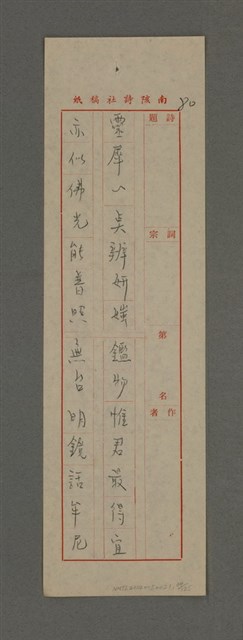 南陔詩社稿紙
80
詩題
詞宗
第 名
作者
靈犀一點辨妍媸 鑑物惟君最得宜
亦似佛光能普照 無台明鏡話牟尼